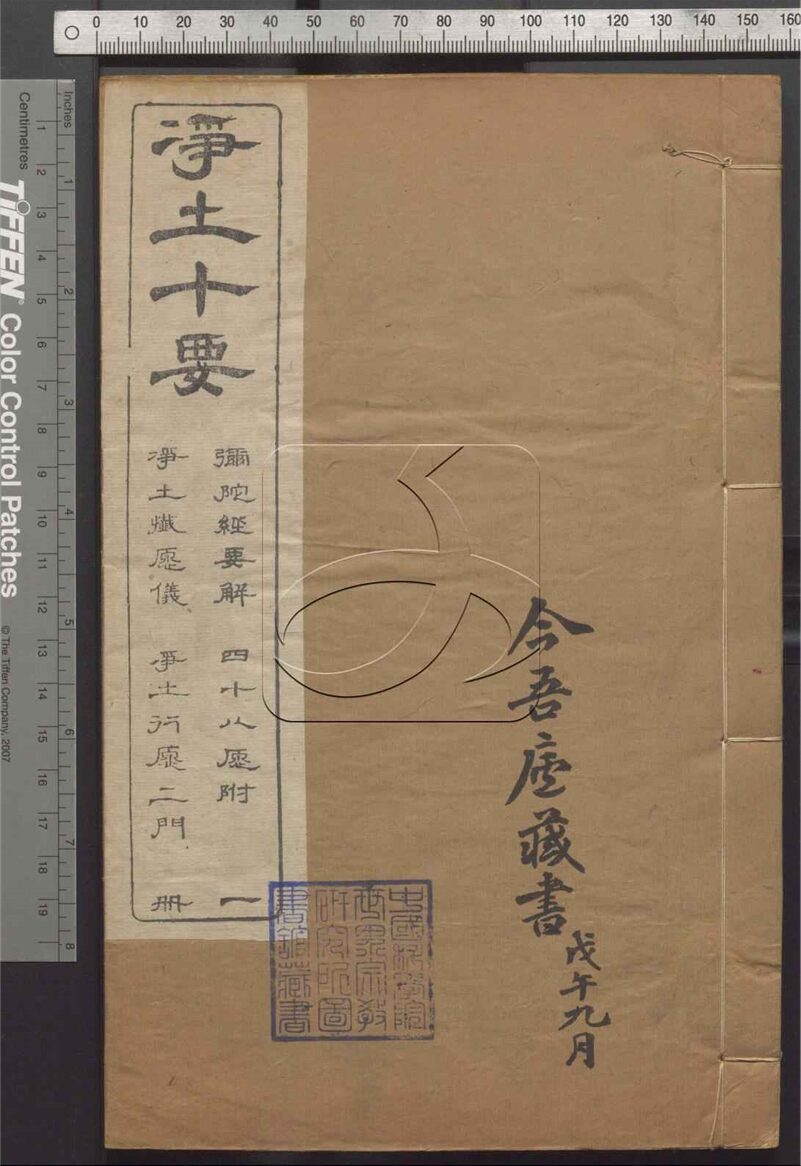 0 10 20 30 40 50 60 70 80 90 100 110 120 130 140 150 160
Inches
1 2 3 4 5 6 7 8
Centimetres
1 2 3 4 5 6 7 8 9 10 11 12 13 14 15 16 17 18 19
TIFFEN® Color Control Patches
© The Tiffen Company, 2007
今吾廬藏書
戊午九月
淨土十要
彌陀經要解 四十八願附 一
淨土懺願儀 淨土行願二門 册
中國科學院
世界宗教
研究所圖
書館藏書